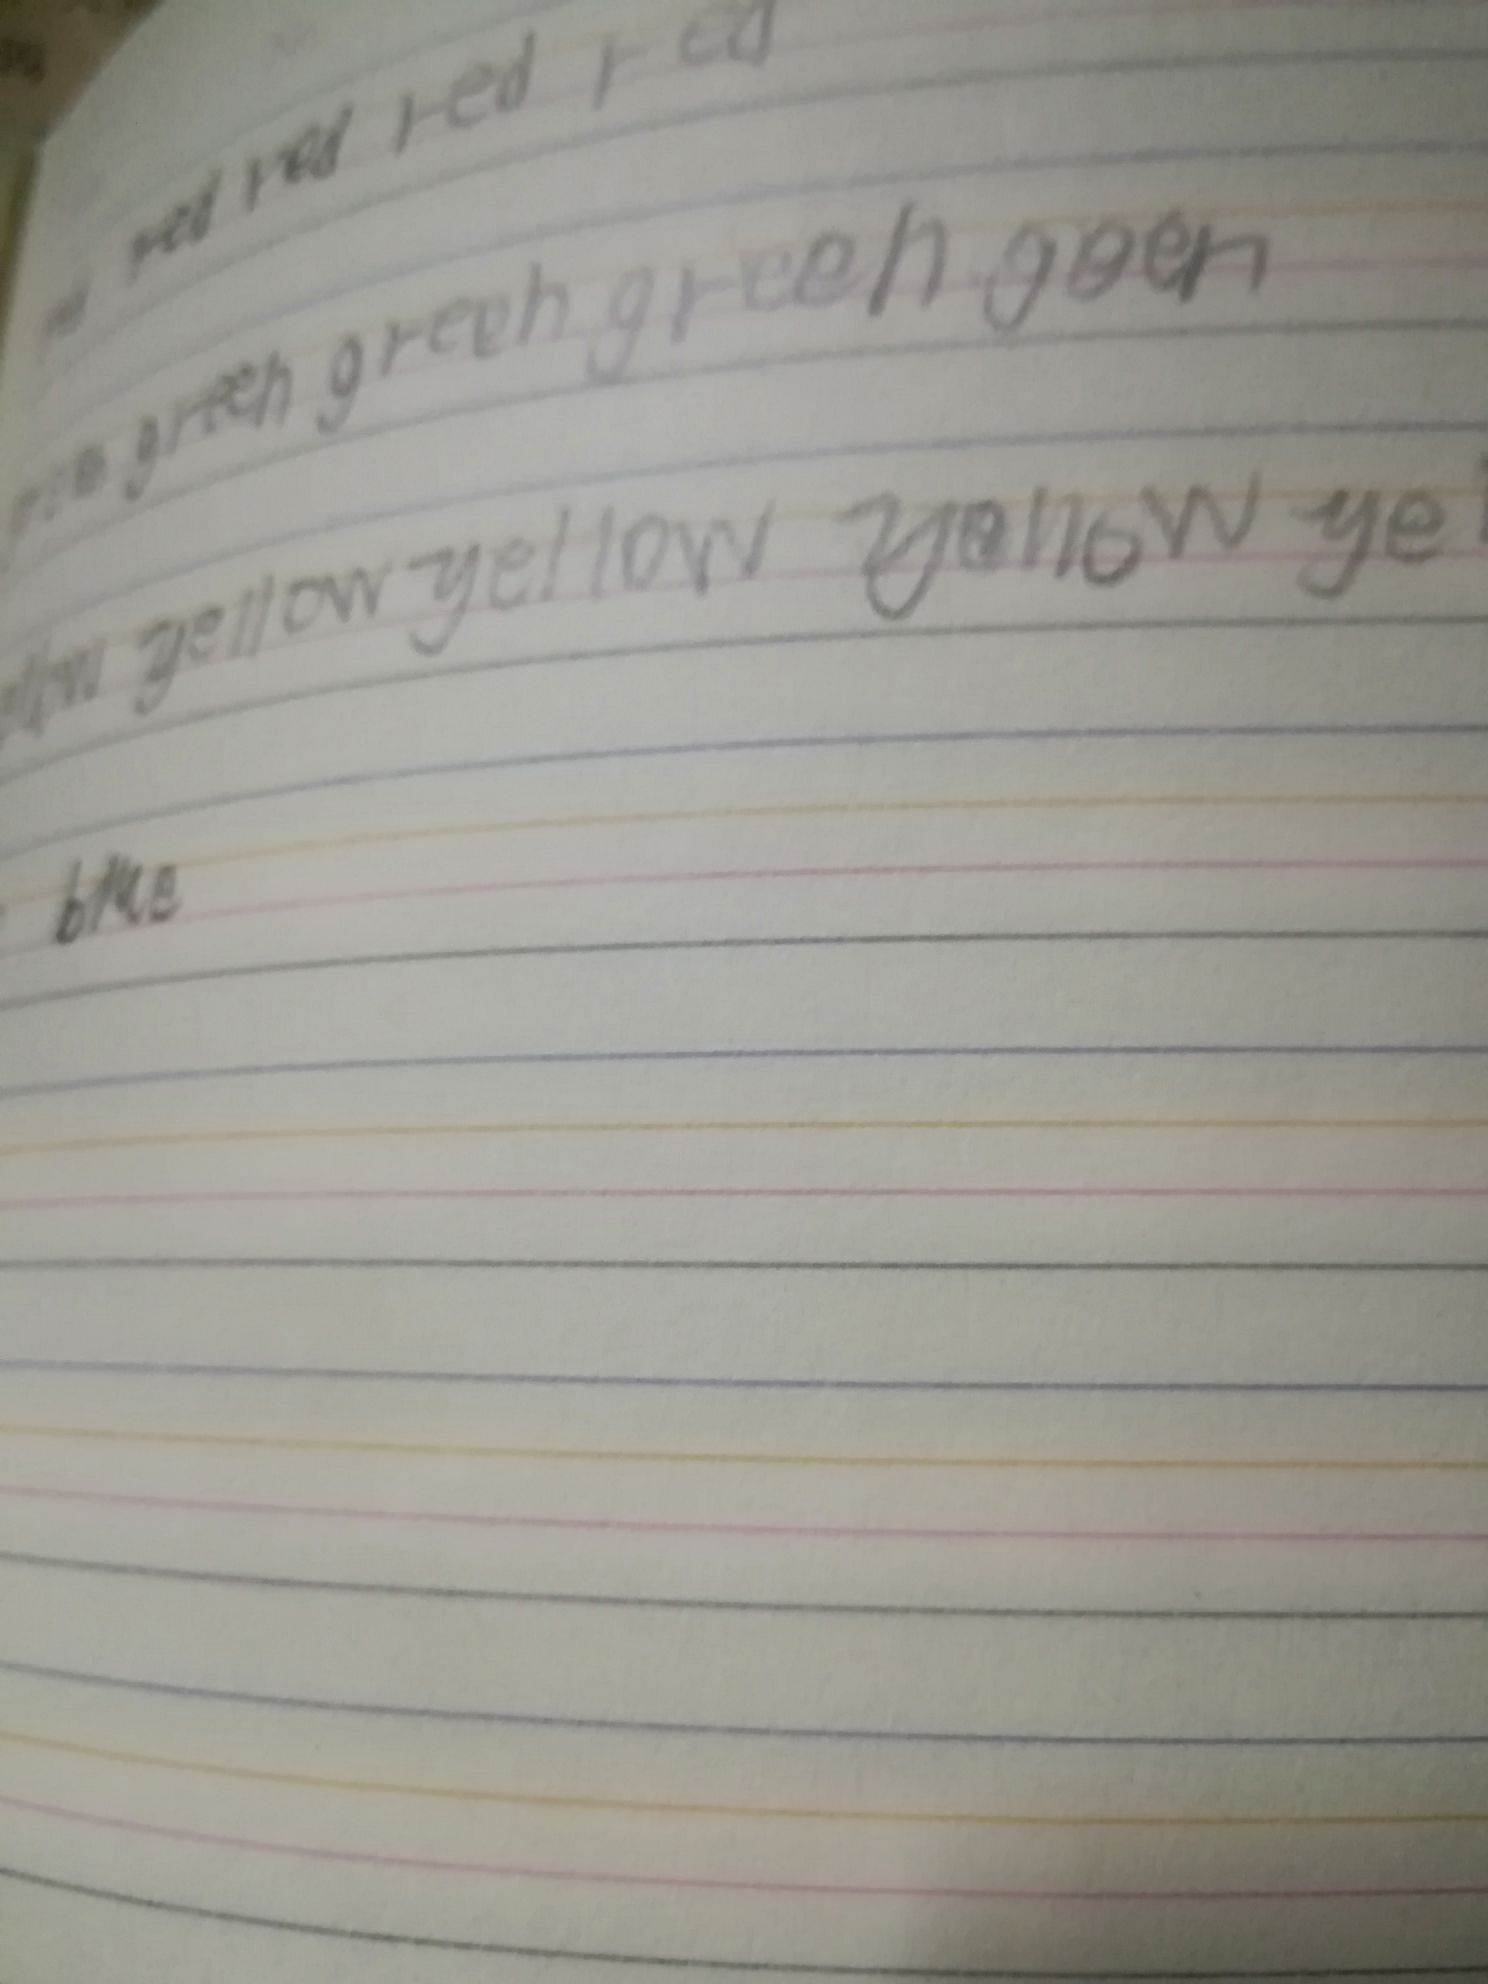 red red red red
green green green goen
yellow yellow yellow
blue